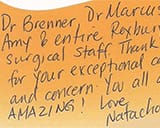 Dr Brenner, Dr Marcus
Amy & entire Roxbury
surgical staff Thank
for your exceptional c
and concern. You all a
AMAZING!
Love,
Natacha